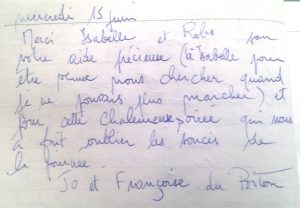 mercredi 15 juin
Merci Isabelle et Robe pour
votre aide précieuse (à Isabelle pour
être venue nous chercher quand
je ne pouvais plus marcher) et
pour cette chaleureuse soirée qui nous
a fait oublier les soucis de
la journée.
Jo et Françoise du